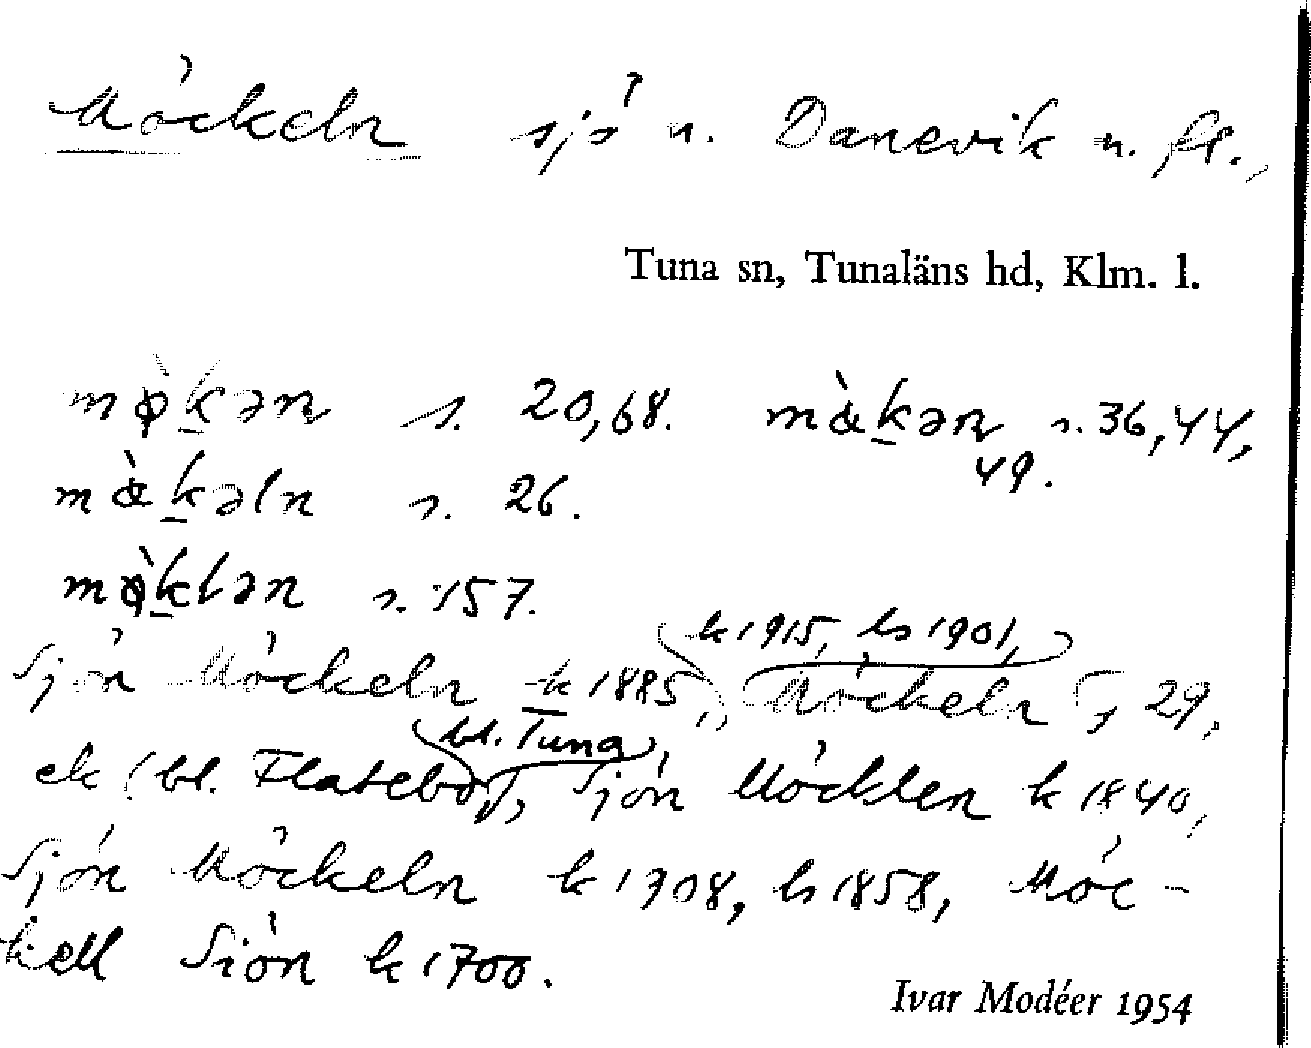 Möckeln sjö n. Danevik n. fl.,
Tuna sn, Tunaläns hd, Klm. l.
mø̀kən s. 20,68. mæ̀kən s. 36,44,
49.
mæ̀kəln s. 26.
mø̀klən s. 157.
k 1915, ls 1901,
Sjön Möckeln k 1885, Möckeln J 29,
bl. Tuna,
ek (bl. Flatebo), Sjön Möcklen k 1840,
Sjön Möckeln k 1708, ls 1858, Möc-
kell Siön k 1700.
Ivar Modéer 1954